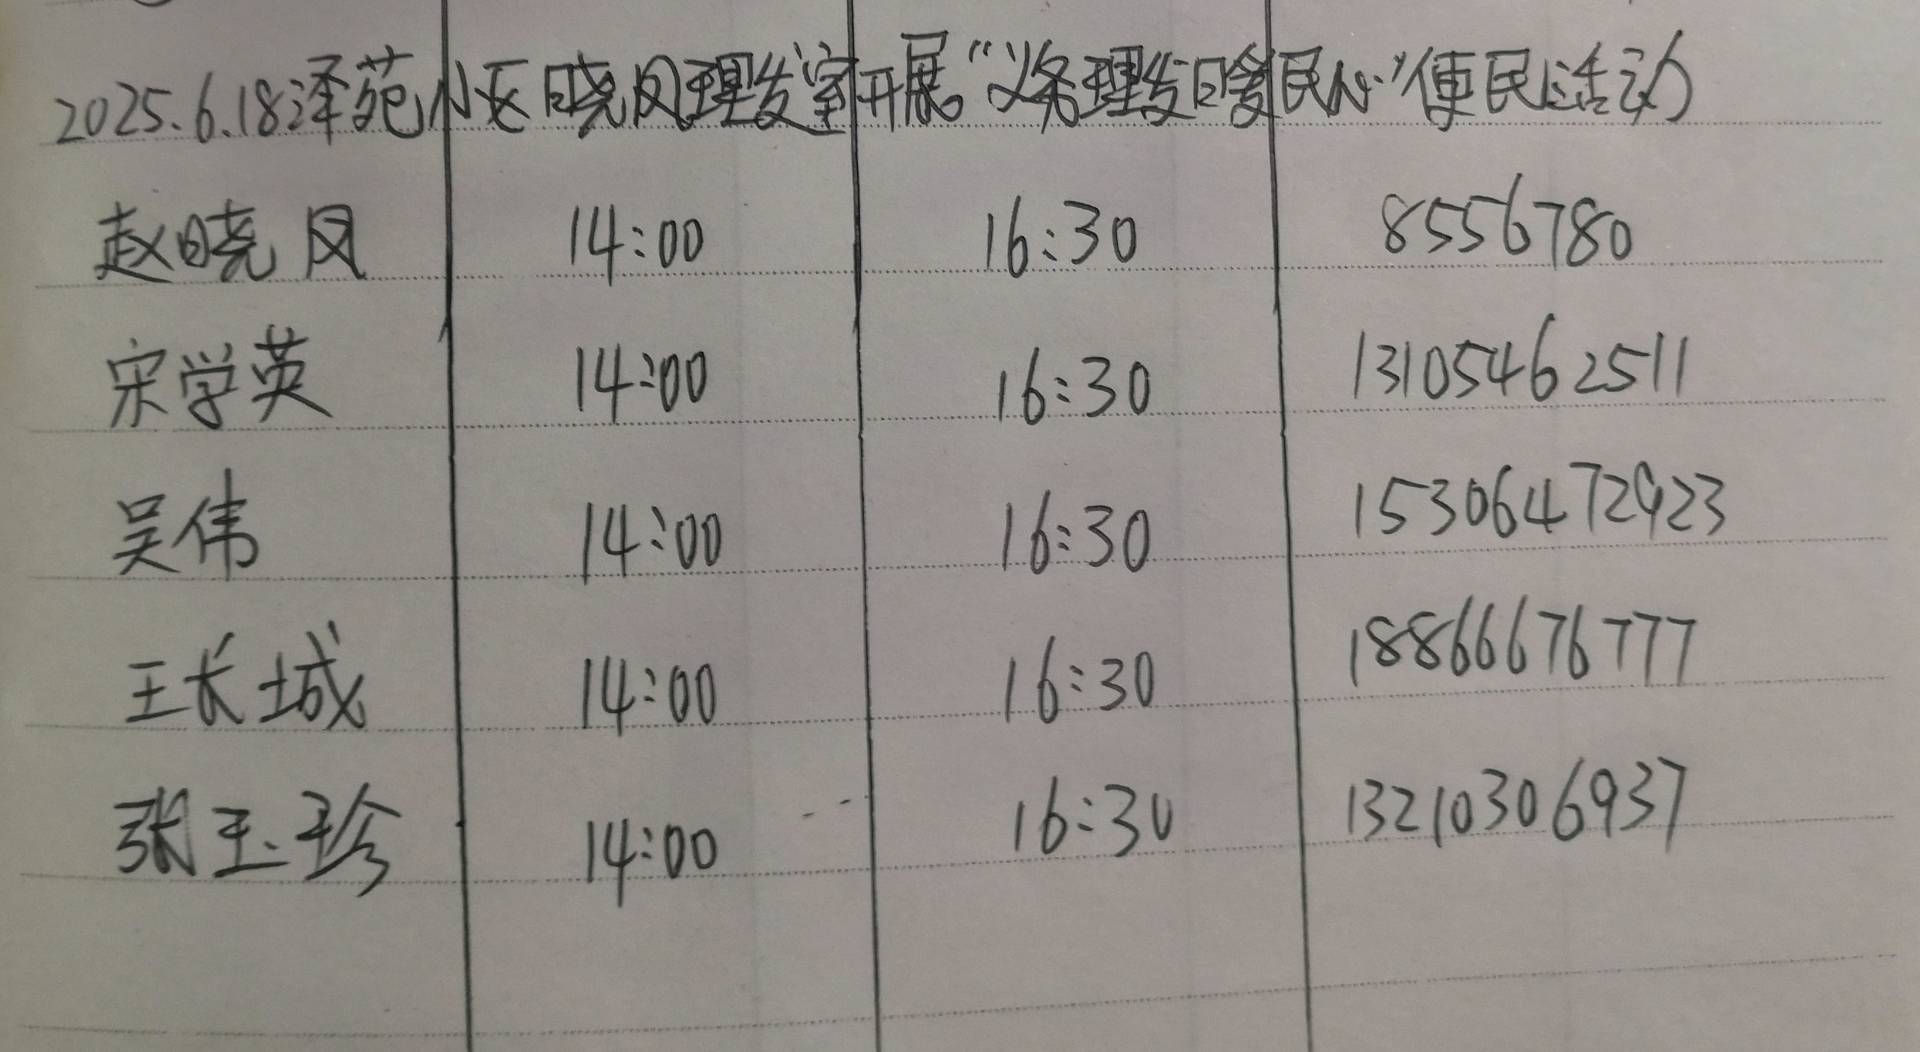 2025.6.18泽苑小区晓凤理发室开展“义务理发暖民心”便民活动
赵晓凤 14:00 16:30 8556780
宋学英 14:00 16:30 13105462511
吴伟 14:00 16:30 15306472923
王长城 14:00 16:30 18866676777
张玉珍 14:00 16:30 13210306937